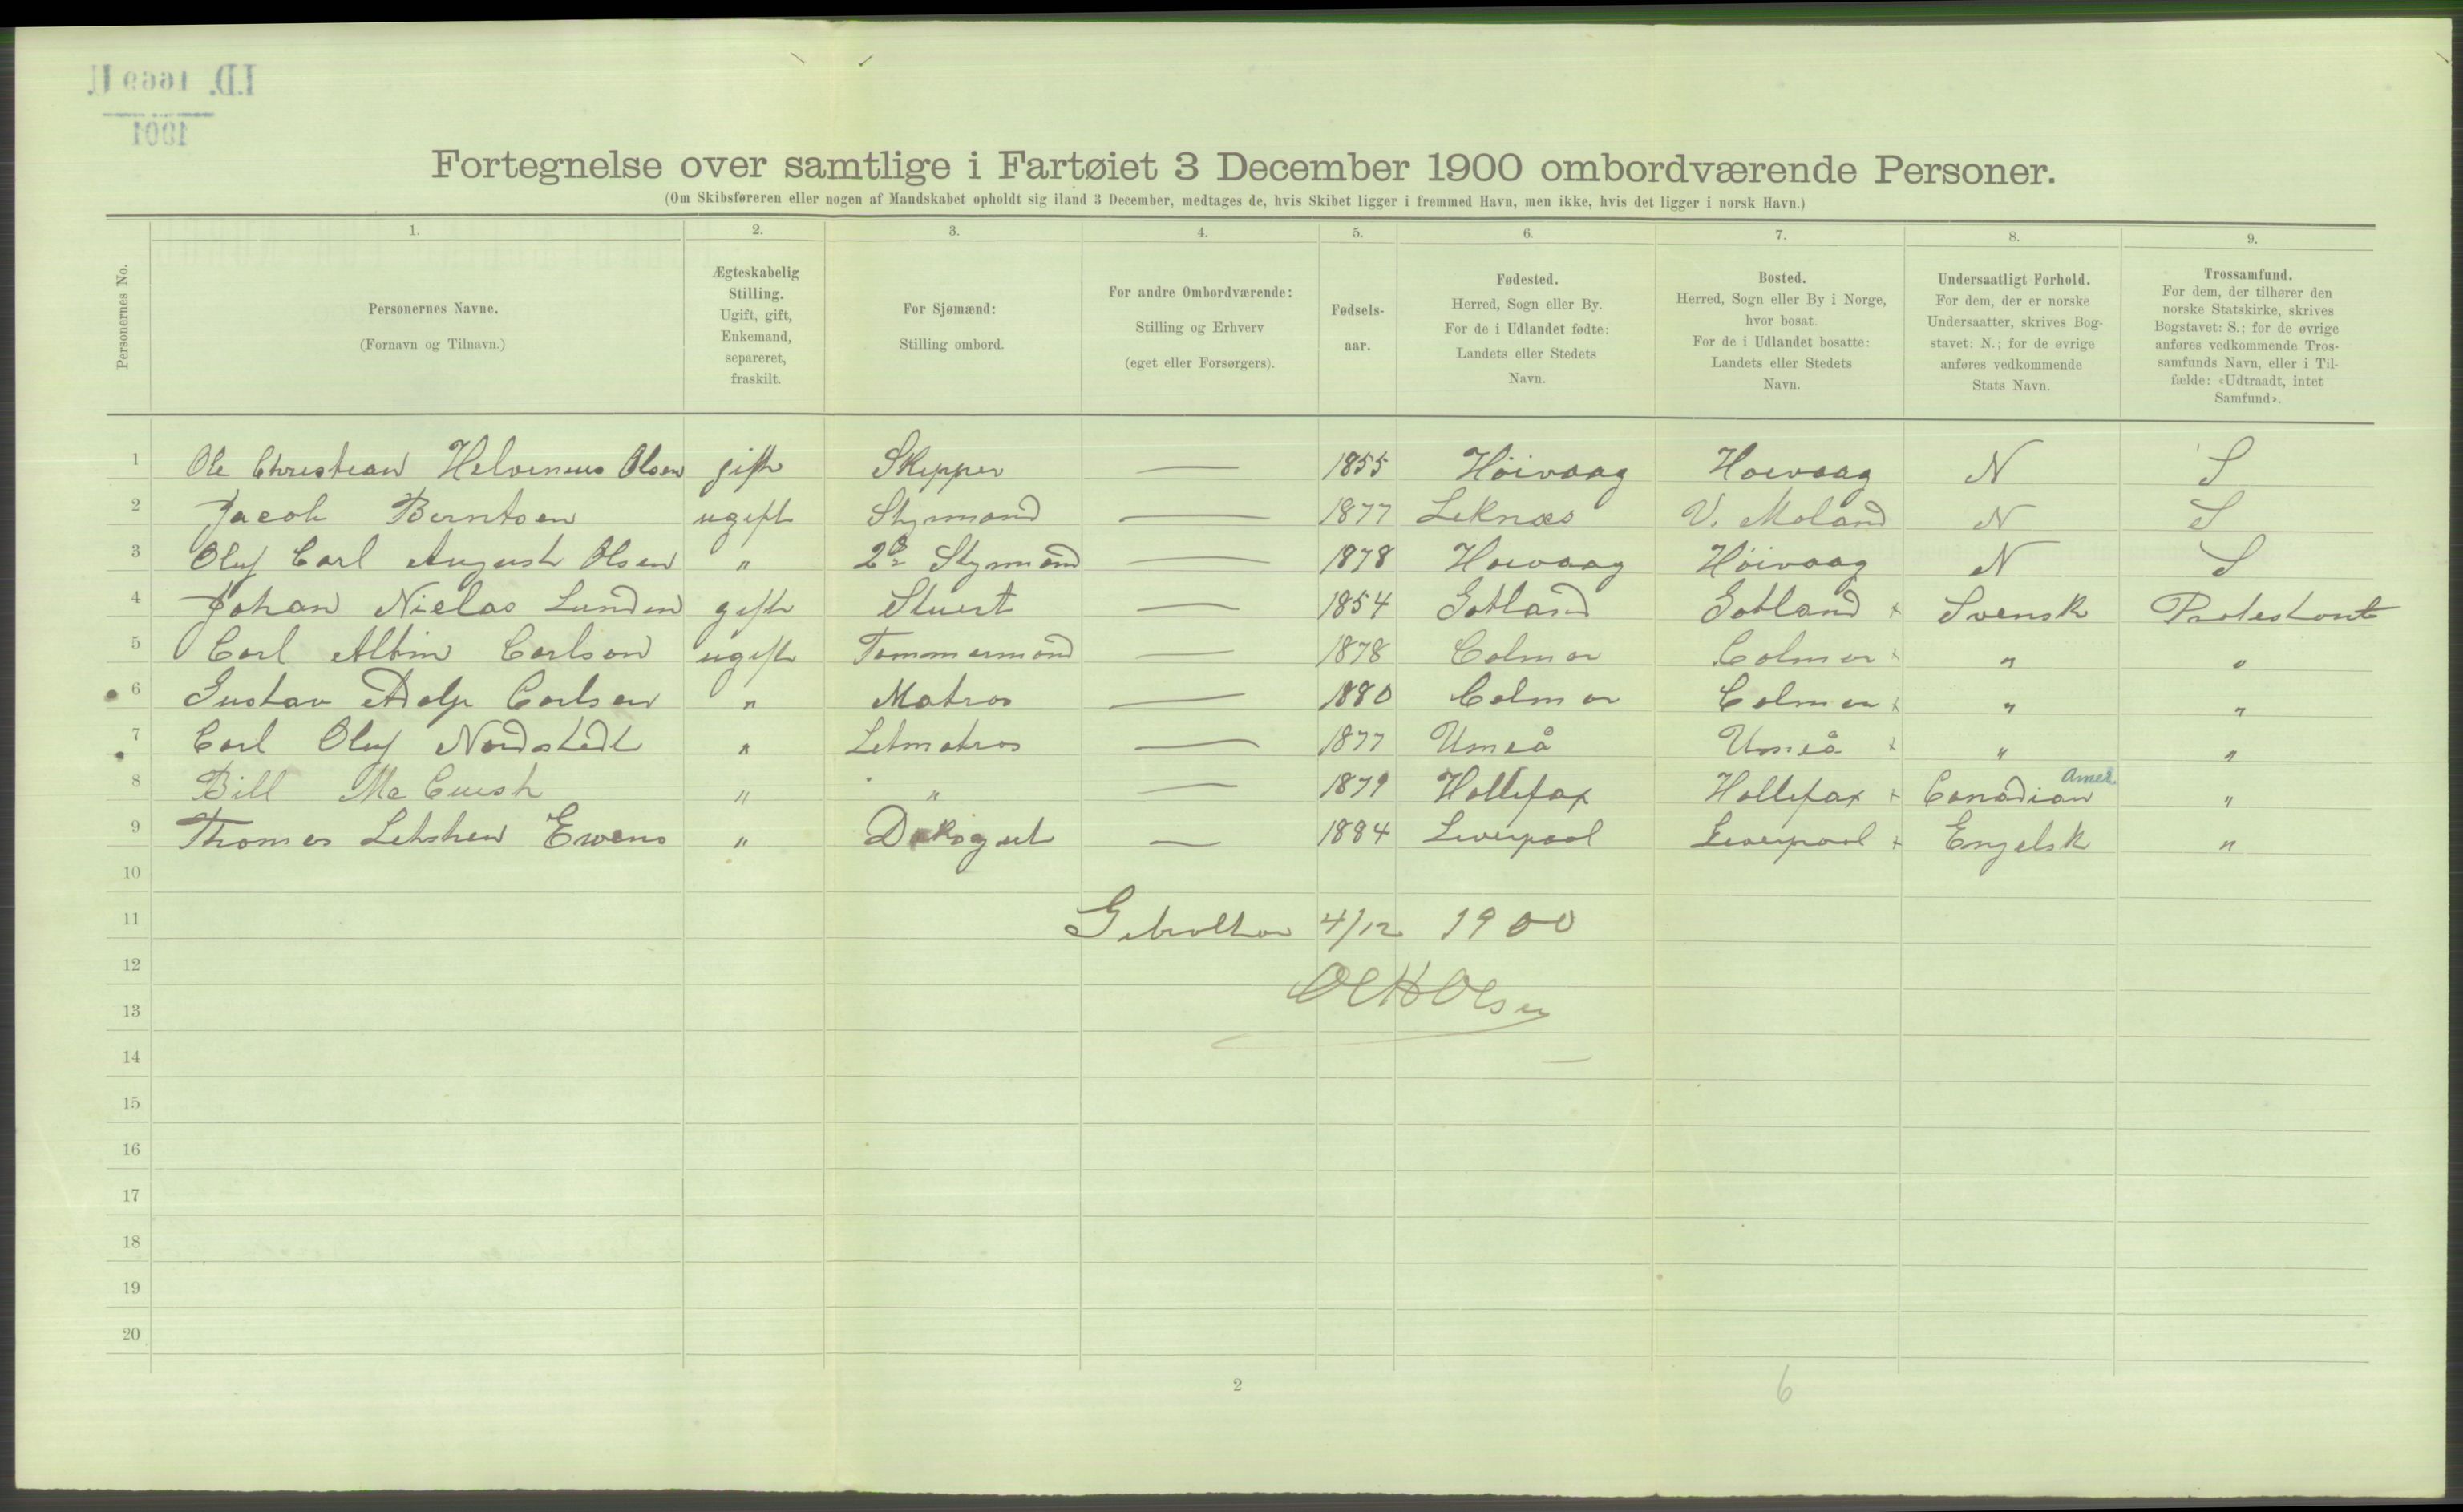 I.D. 1669 II.
1901
Fortegnelse over samtlige i Fartøiet 3 December 1900 ombordværende Personer.
(Om Skibsføreren eller nogen af Mandskabet opholdt sig iland 3 December, medtages de, hvis Skibet ligger i fremmed Havn, men ikke, hvis det ligger i norsk Havn.)
Personernes No.
1. Personernes Navne. (Fornavn og Tilnavn.)
2. Ægteskabelig Stilling. Ugift, gift, Enkemand, separeret, fraskilt.
3. For Sjømænd: Stilling ombord.
4. For andre Ombordværende: Stilling og Erhverv (eget eller Forsørgers).
5. Fødsels-aar.
6. Fødested. Herred, Sogn eller By. For de i Udlandet fødte: Landets eller Stedets Navn.
7. Bosted. Herred, Sogn eller By i Norge, hvor bosat. For de i Udlandet bosatte: Landets eller Stedets Navn.
8. Undersaatligt Forhold. For dem, der er norske Undersaatter, skrives Bog-stavet: N.; for de øvrige anføres vedkommende Stats Navn.
9. Trossamfund. For dem, der tilhører den norske Statskirke, skrives Bogstavet: S.; for de øvrige anføres vedkommende Tros-samfunds Navn, eller i Til-fælde: «Udtraadt, intet Samfund».
1 Ole Christian Helvenius Olsen gift Skipper — 1855 Höivaag Hoivaag N S
2 Jacob Berntsen ugift Styrmand — 1877 Leknæs V. Moland N S
3 Oluf Carl August Olsen " 2de Styrmand — 1878 Hoivaag Höivaag N S
4 Johan Nielas Lunden gift Stuert — 1854 Gotland Gotland x Svensk Protestant
5 Carl Albin Carlson ugift Tommermand — 1878 Colmar Colmar x " "
6 Gustav Adolf Carlsen " Matros — 1880 Colmar Colmar x " "
7 Carl Oluf Nordstedt " Letmatros — 1877 Umeå Umeå x " "
8 Bill Mc Cuish " " — 1879 Hallifax Hallifax x Canadian Amer. "
9 Thomas Ewens " Deksgut — 1884 Liverpool Liverpool x Engelsk "
10
11 Gibraltar 4/12 1900
12
OCHOlsen
13
14
15
16
17
18
19
20
2
6